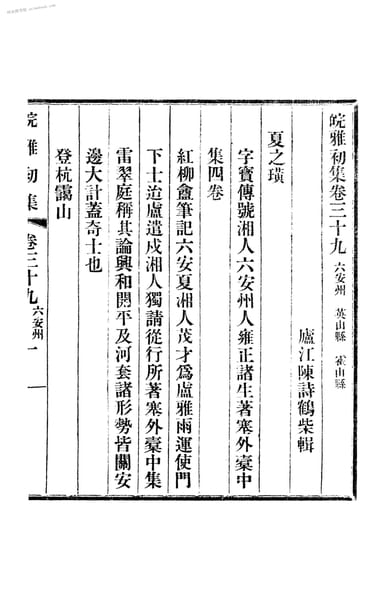 皖雅初集卷三十九 六安州 英山縣 霍山縣
廬江陳詩鶴柴輯
夏之璜
字寶傳號湘人六安州人雍正諸生著塞外橐中
集四卷
紅柳盦筆記六安夏湘人茂才爲盧雅雨運使門
下士迨盧遣戍湘人獨請從行所著塞外橐中集
雷翠庭稱其論興和開平及河套諸形勢皆關安
邊大計蓋奇士也
登杭靄山
皖雅初集 卷三十九 六安州 一